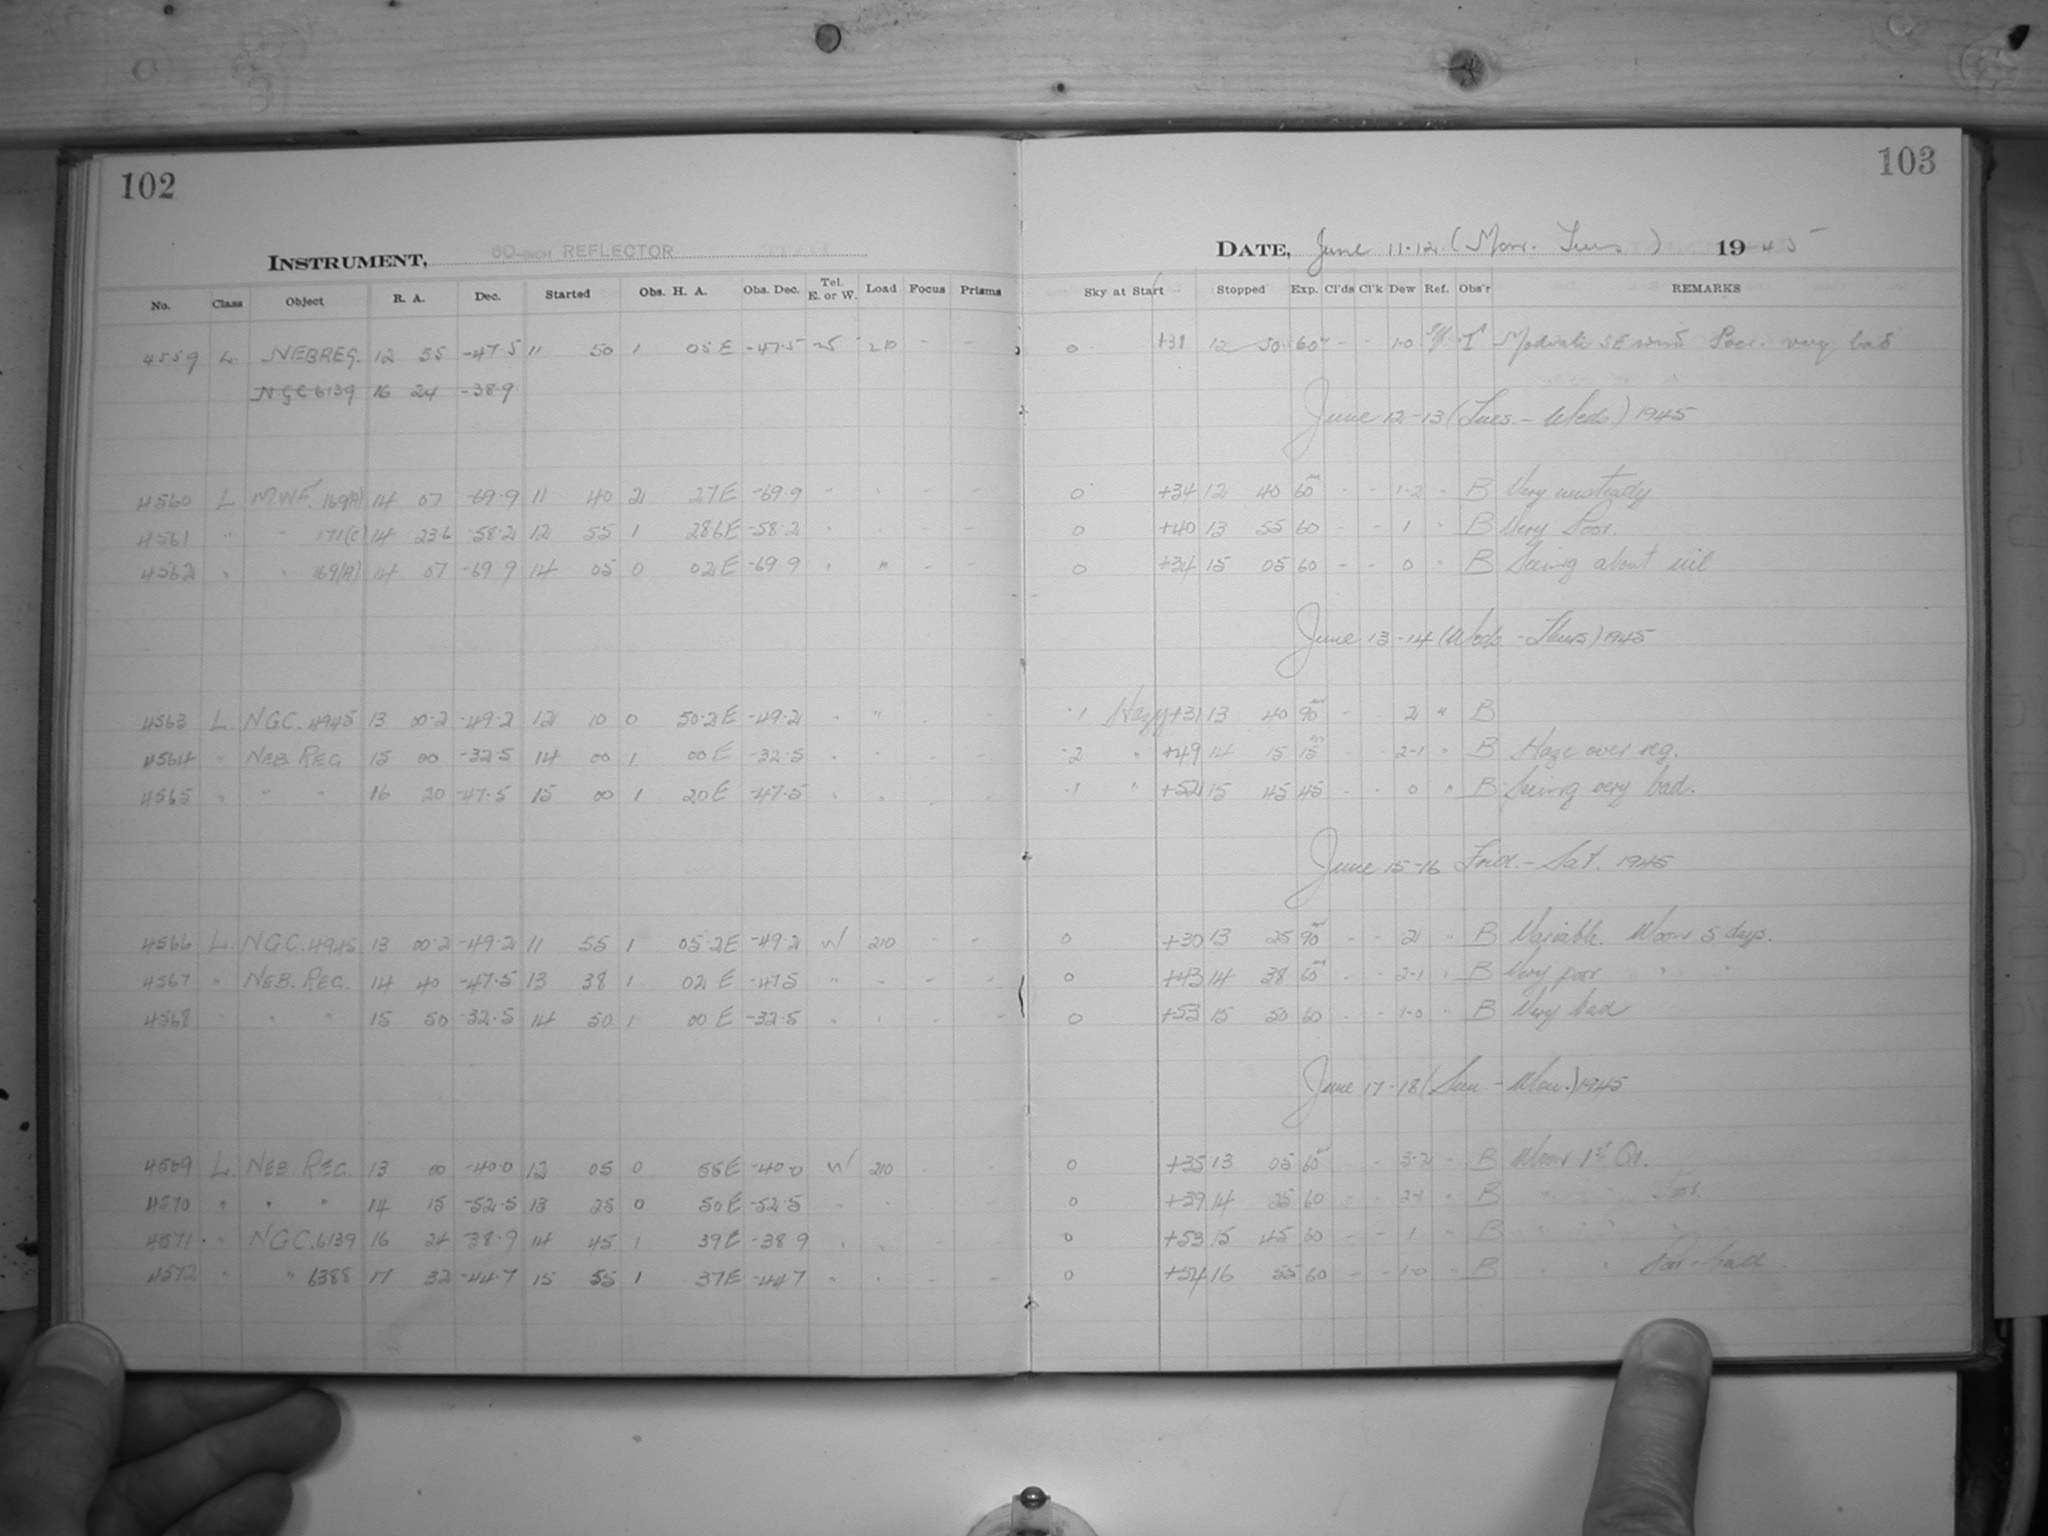 102
103
INSTRUMENT, 60-INCH REFLECTOR
DATE, June 11-12 (Mon. Tues) 1945
No. Class Object R. A. Dec. Started Obs. H. A. Obs. Dec. Tel. E. or W. Load Focus Prisms Sky at Start Stopped Exp. Cl'ds Cl'k Dew Ref. Obs'r REMARKS
4559 L. NEB REG. 12 55 -47.5 11 50 1 05 E -47.5 210 - - 0 +31 12 50 60 - - 1-0 Moderate SE wind Poor. very bad
NGC 6139 16 24 -38.9
June 12-13 (Tues. - Weds.) 1945
4560 L MWF. 169(A) 14 07 -69.9 11 40 2 27 E -69.9 " " - - 0 +34 12 40 60 - - 1-2 " B Very unsteady
4561 " " 171(C) 14 23.6 -58.2 12 55 1 28.6 E -58.2 " " - - 0 +40 13 55 60 - - 1 " B Very Poor.
4562 " " 169(A) 14 07 -69.9 14 05 0 02 E -69.9 " " - - 0 +34 15 05 60 - - 0 " B Seeing about nil
June 13-14 (Weds - Thurs) 1945
4563 L NGC. 4945 13 00.2 -49.2 12 10 0 50.2 E -49.2 " " - - .1 Hazy +31 13 40 90 - - 2 " B
4564 " NEB REG 15 00 -32.5 14 00 1 00 E -32.5 " " - - .2 " +49 14 15 15 - - 2-1 " B Haze over reg.
4565 " " " 16 20 -47.5 15 00 1 20 E -47.5 " " - - .1 " +52 15 45 45 - - 0 " B Seeing very bad.
June 15-16 Frid. - Sat. 1945
4566 L. NGC. 4945 13 00.2 -49.2 11 55 1 05.2 E -49.2 W 210 - - 0 +30 13 25 90 - - 2 " B Variable. Moon 5 days.
4567 " NEB. REG. 14 40 -47.5 13 38 1 02 E -47.5 " " - - 0 +43 14 38 60 - - 2-1 " B Very poor " "
4568 " " " 15 50 -32.5 14 50 1 00 E -32.5 " " - - 0 +53 15 50 60 - - 1-0 " B Very bad
June 17-18 (Sun - Mon.) 1945
4569 L. NEB. REG. 13 00 -40.0 12 05 0 55 E -40.0 W 210 - - 0 +35 13 05 60 - - 3-2 " B Moon 1st Qr.
4570 " " " 14 15 -52.5 13 25 0 50 E -52.5 " " - - 0 +39 14 25 60 - - 2-1 " B " "
4571 " NGC. 6139 16 24 -38.9 14 45 1 39 E -38.9 " " - - 0 +53 15 45 60 - - 1 " B " " "
4572 " " 6388 17 32 -44.7 15 55 1 37 E -44.7 " " - - 0 +54 16 55 60 - - 1-0 " B " " Poor - bad.